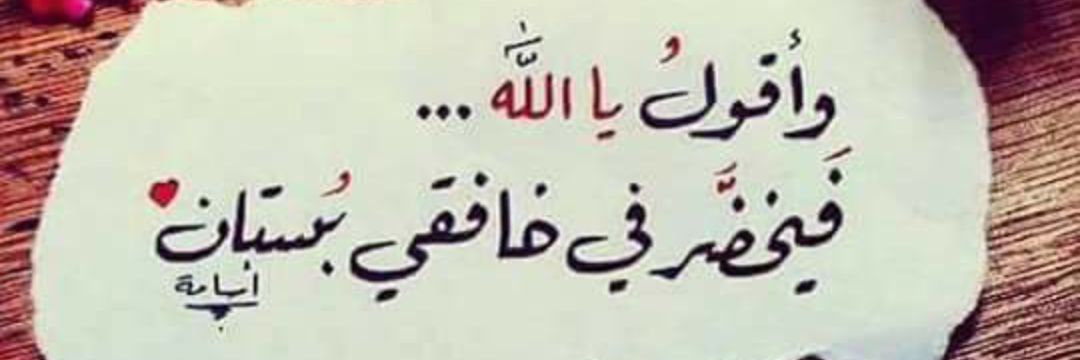 وأقولُ يا اللّٰه ...
فَيخضَّر في خافقي بُستان
أسامة